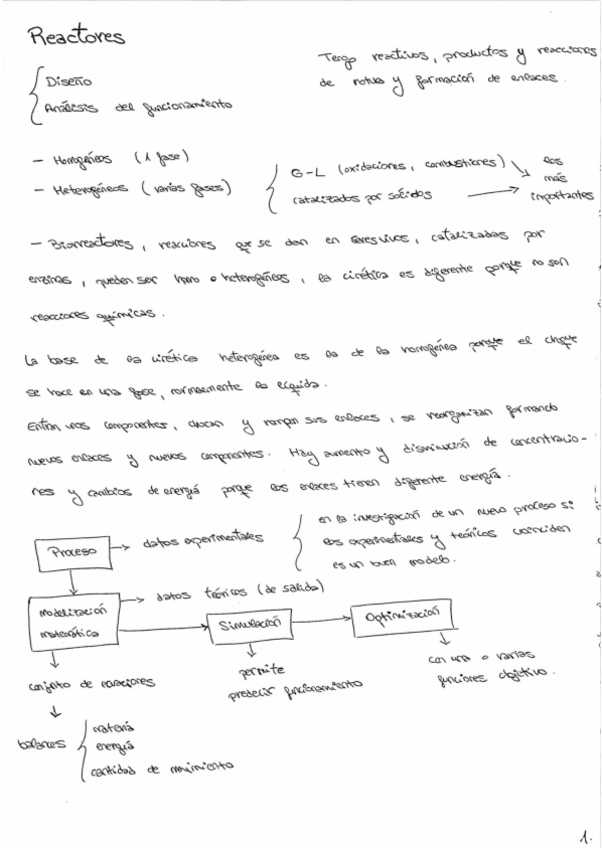 Reactores
Tengo reactivos, productos y reacciones
de rotura y formación de enlaces.
Diseño
Análisis del funcionamiento
- Homogéneos (1 fase)
- Heterogéneos (varias fases)
G-L (oxidaciones, combustiones)
catalizados por sólidos
los
más
importantes
- Biorreactores, reacciones que se dan en seres vivos, catalizadas por
enzimas, pueden ser homo o heterogéneos, la cinética es diferente porque no son
reacciones químicas.
La base de la cinética heterogénea es la de la homogénea porque el choque
se hace en una fase, normalmente la líquida.
Entran unos componentes, chocan y rompen sus enlaces, se reorganizan formando
nuevos enlaces y nuevos componentes. Hay aumento y disminución de concentracio-
nes y cambios de energía porque los enlaces tienen diferente energía.
Proceso
datos experimentales
en la investigación de un nuevo proceso si
los experimentales y teóricos coinciden
es un buen modelo.
datos teóricos (de salida)
Modelización
matemática
Simulación
Optimización
conjunto de ecuaciones
permite
predecir funcionamiento
con una o varias
funciones objetivo.
balances
materia
energía
cantidad de movimiento
1.